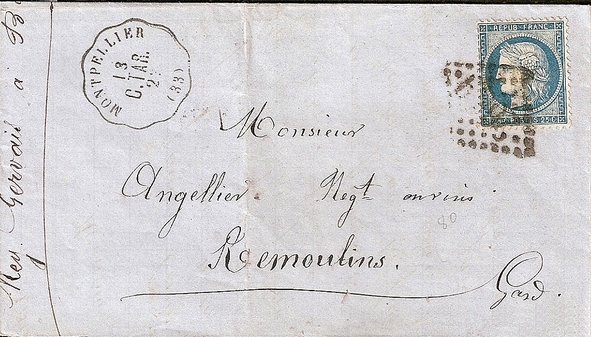 MONTPELLIER
13
C.TAR.
(33)
REPUB. FRANC.
Monsieur
Angellier Negt en vins
80
Remoulins.
Gard.
Gervais à